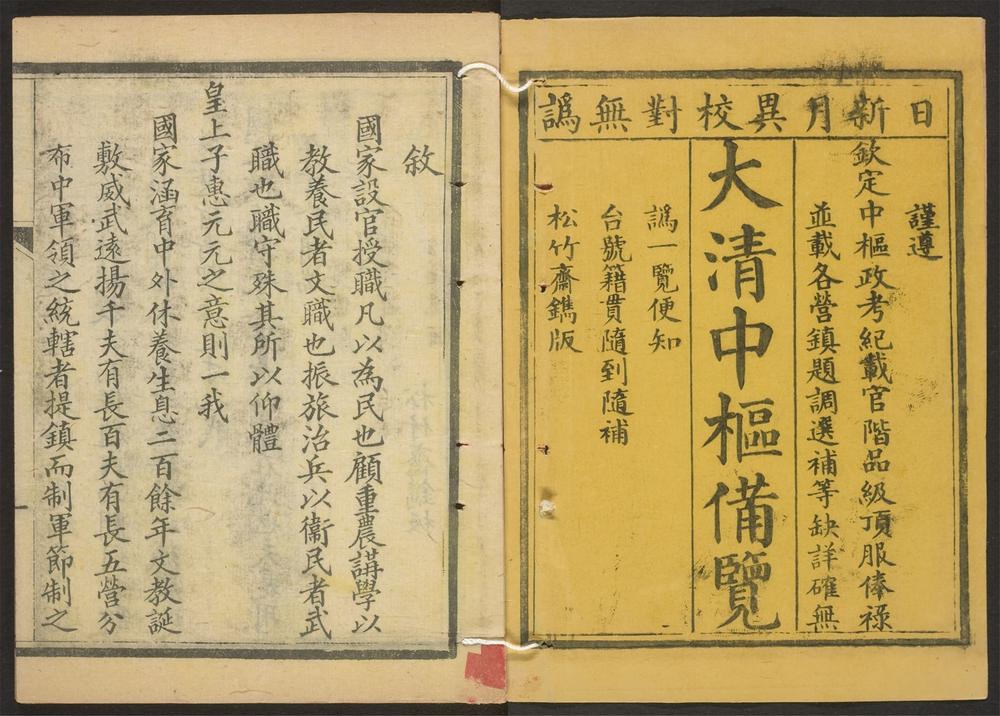 日新月異校對無譌
謹遵
欽定中樞政考紀載官階品級頂服俸祿
並載各營鎮題調選補等缺詳確無
大清中樞備覽
譌一覽便知
台號籍貫隨到隨補
松竹齋鐫版
敘
國家設官授職凡以為民也顧重農講學以
教養民者文職也振旅治兵以衞民者武
職也職守殊其所以仰體
皇上子惠元元之意則一我
國家涵育中外休養生息二百餘年文教誕
敷威武遠揚千夫有長百夫有長五營分
布中軍領之統轄者提鎮而制軍節制之